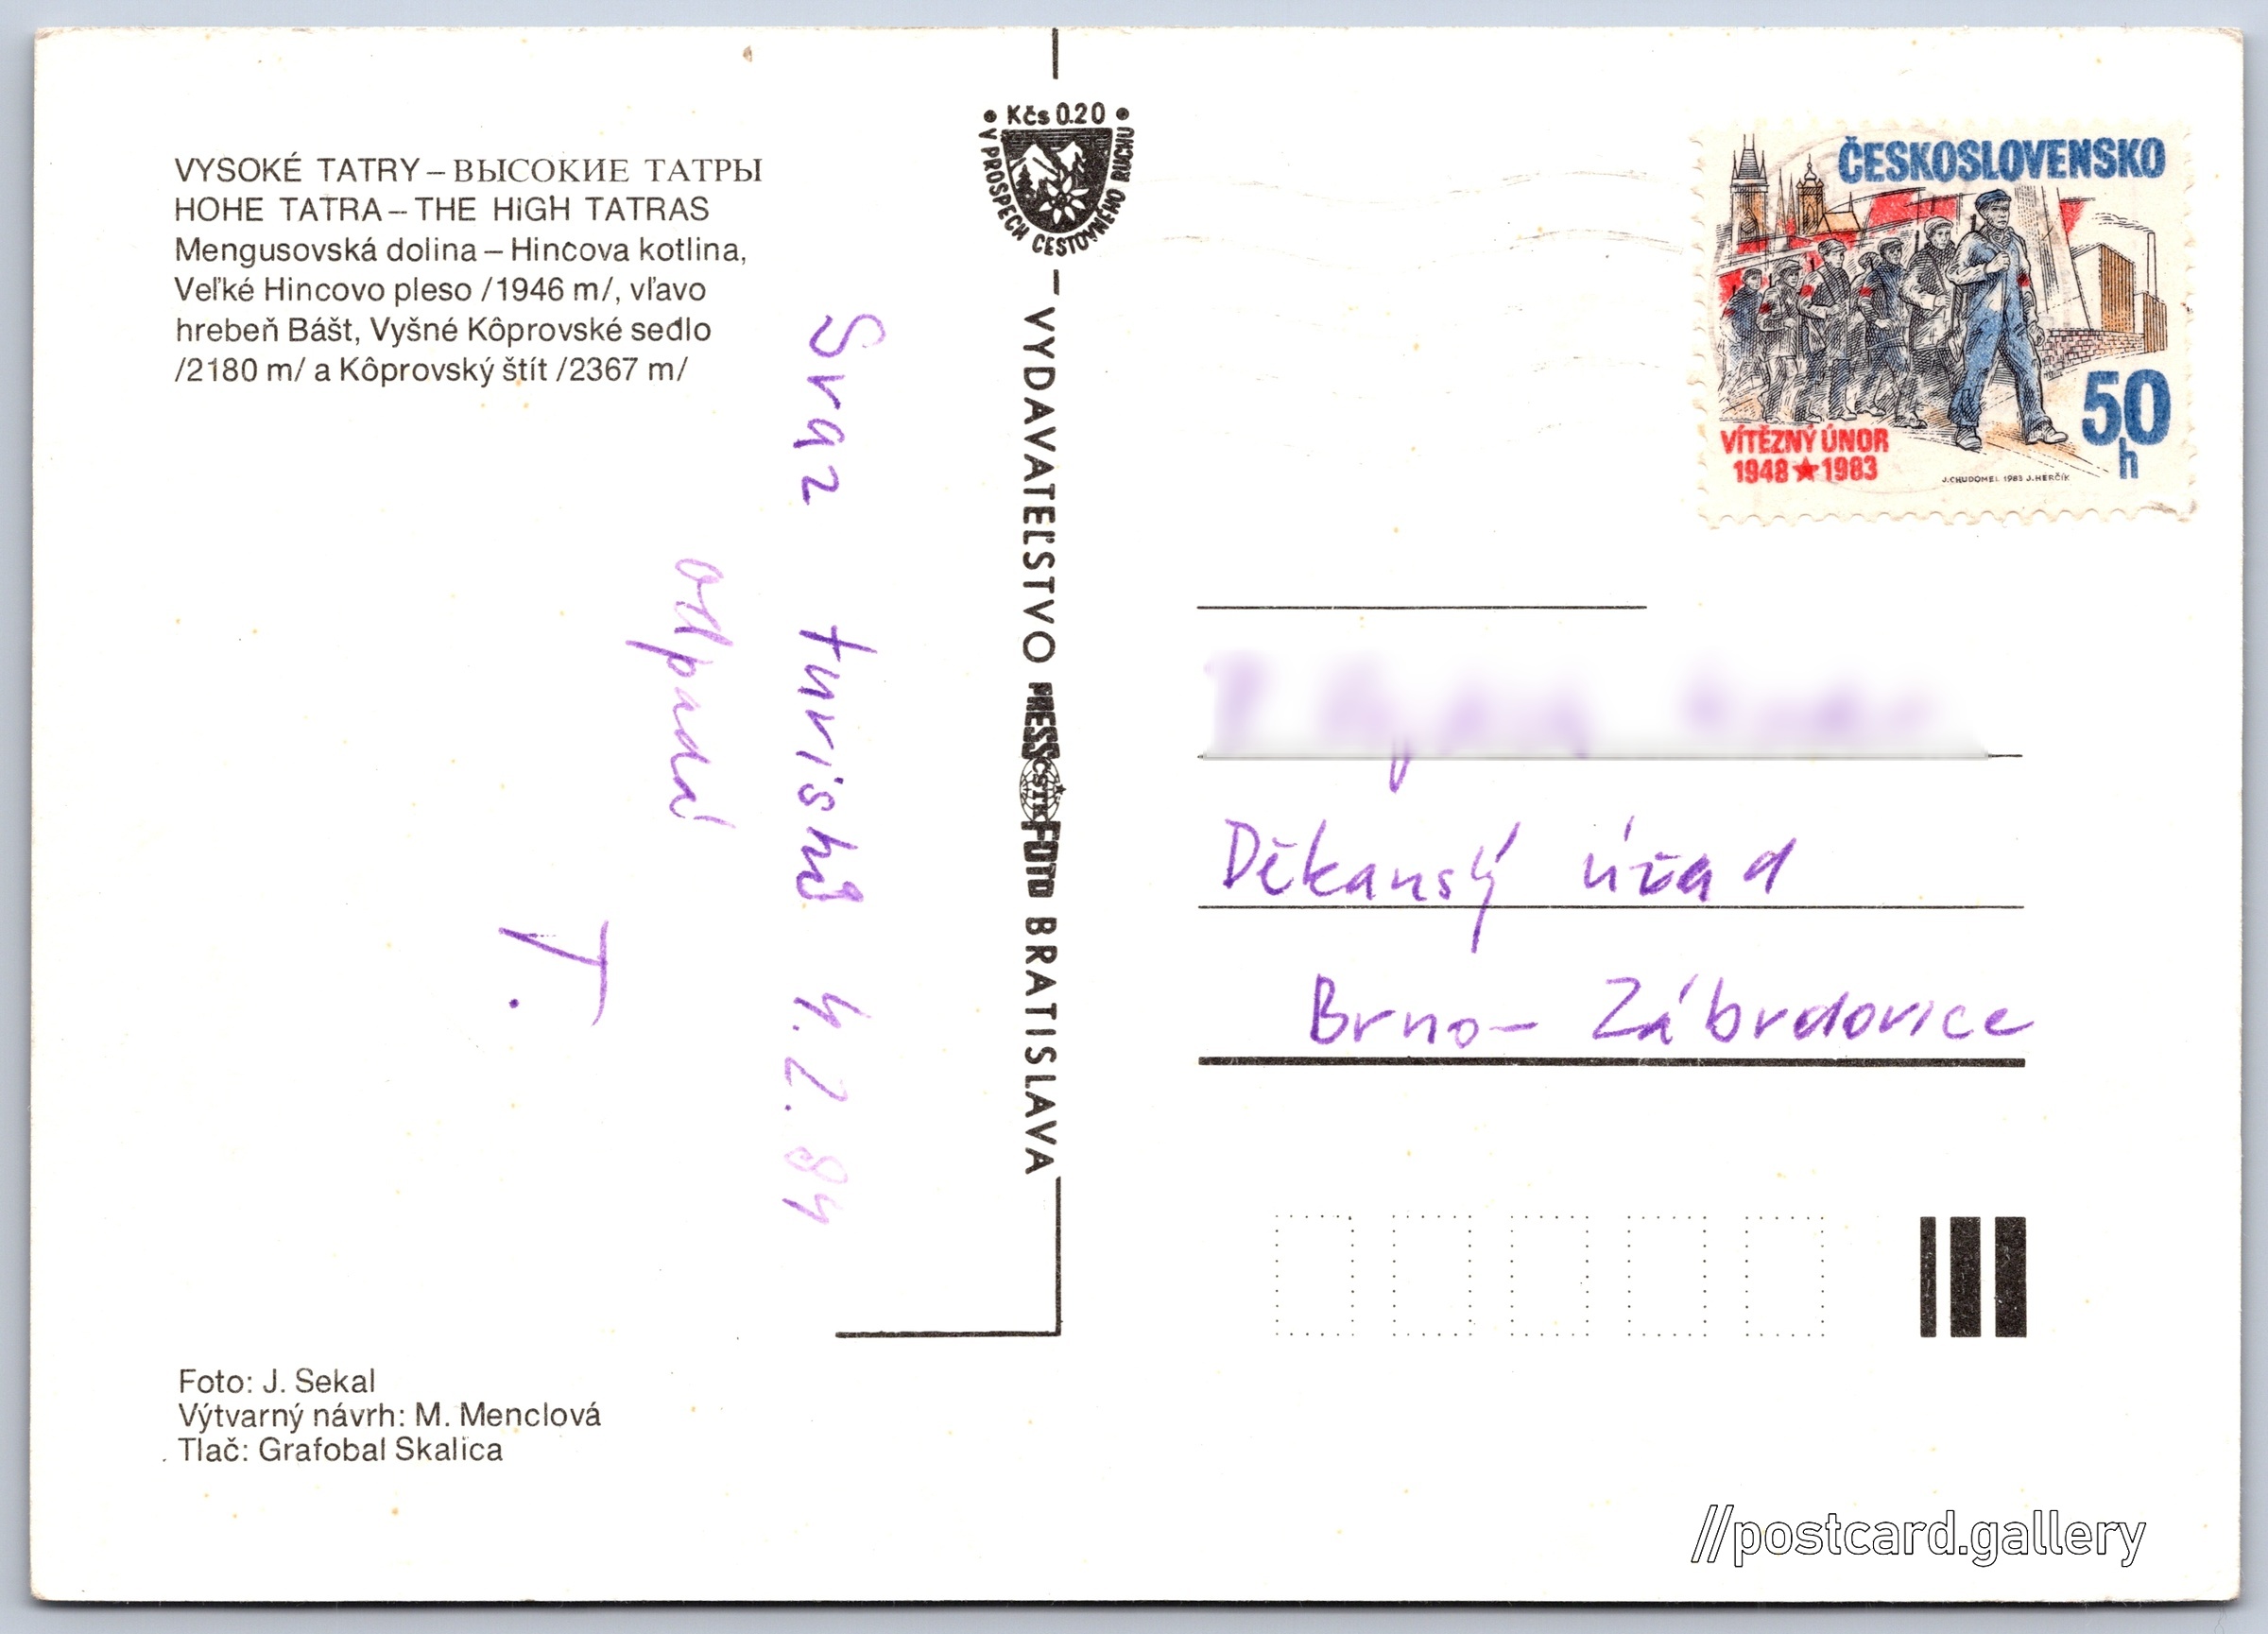 VYSOKÉ TATRY – ВЫСОКИЕ ТАТРЫ
HOHE TATRA – THE HIGH TATRAS
Mengusovská dolina – Hincova kotlina,
Veľké Hincovo pleso /1946 m/, vľavo
hrebeň Bášt, Vyšné Kôprovské sedlo
/2180 m/ a Kôprovský štít /2367 m/
Sraz turistů 4. 2. 84
odpadá
T.
Foto: J. Sekal
Výtvarný návrh: M. Menclová
Tlač: Grafobal Skalica
• Kčs 0.20 •
V PROSPECH CESTOVNÉHO RUCHU
VYDAVATEĽSTVO PRESSFOTO BRATISLAVA
ČSTK
ČESKOSLOVENSKO
50
h
VÍTĚZNÝ ÚNOR
1948 ★ 1983
J. CHUDOMEL 1983 J. HERČÍK
Děkanský úřad
Brno – Zábrdovice
//postcard.gallery